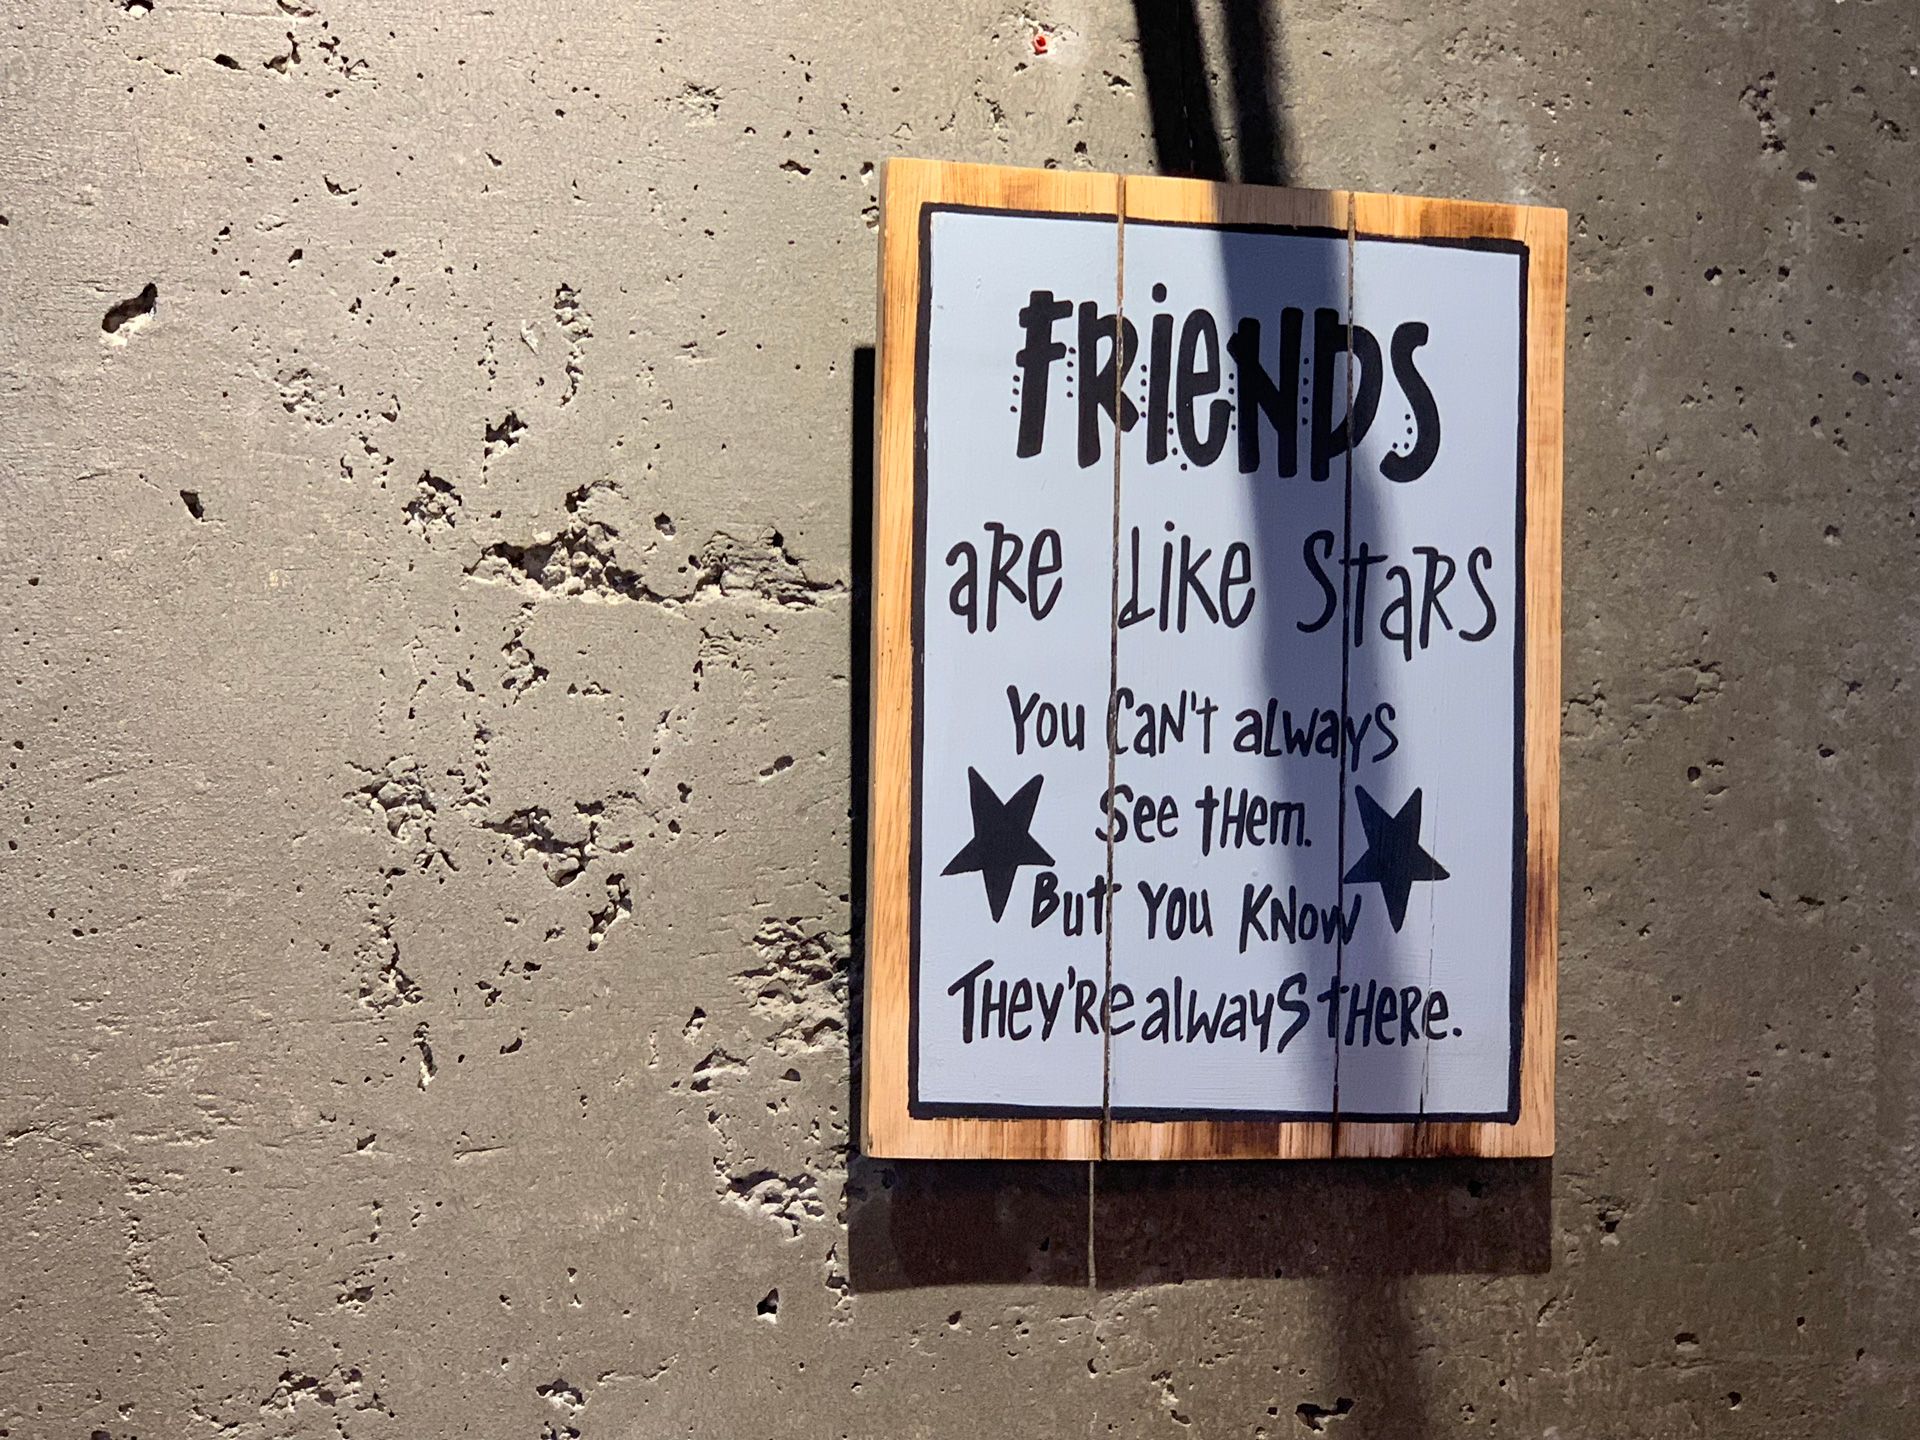 FRiENDS
aRe Like StaRS
You Can't always
See tHem.
But You KNow
THey'Re always tHeRe.